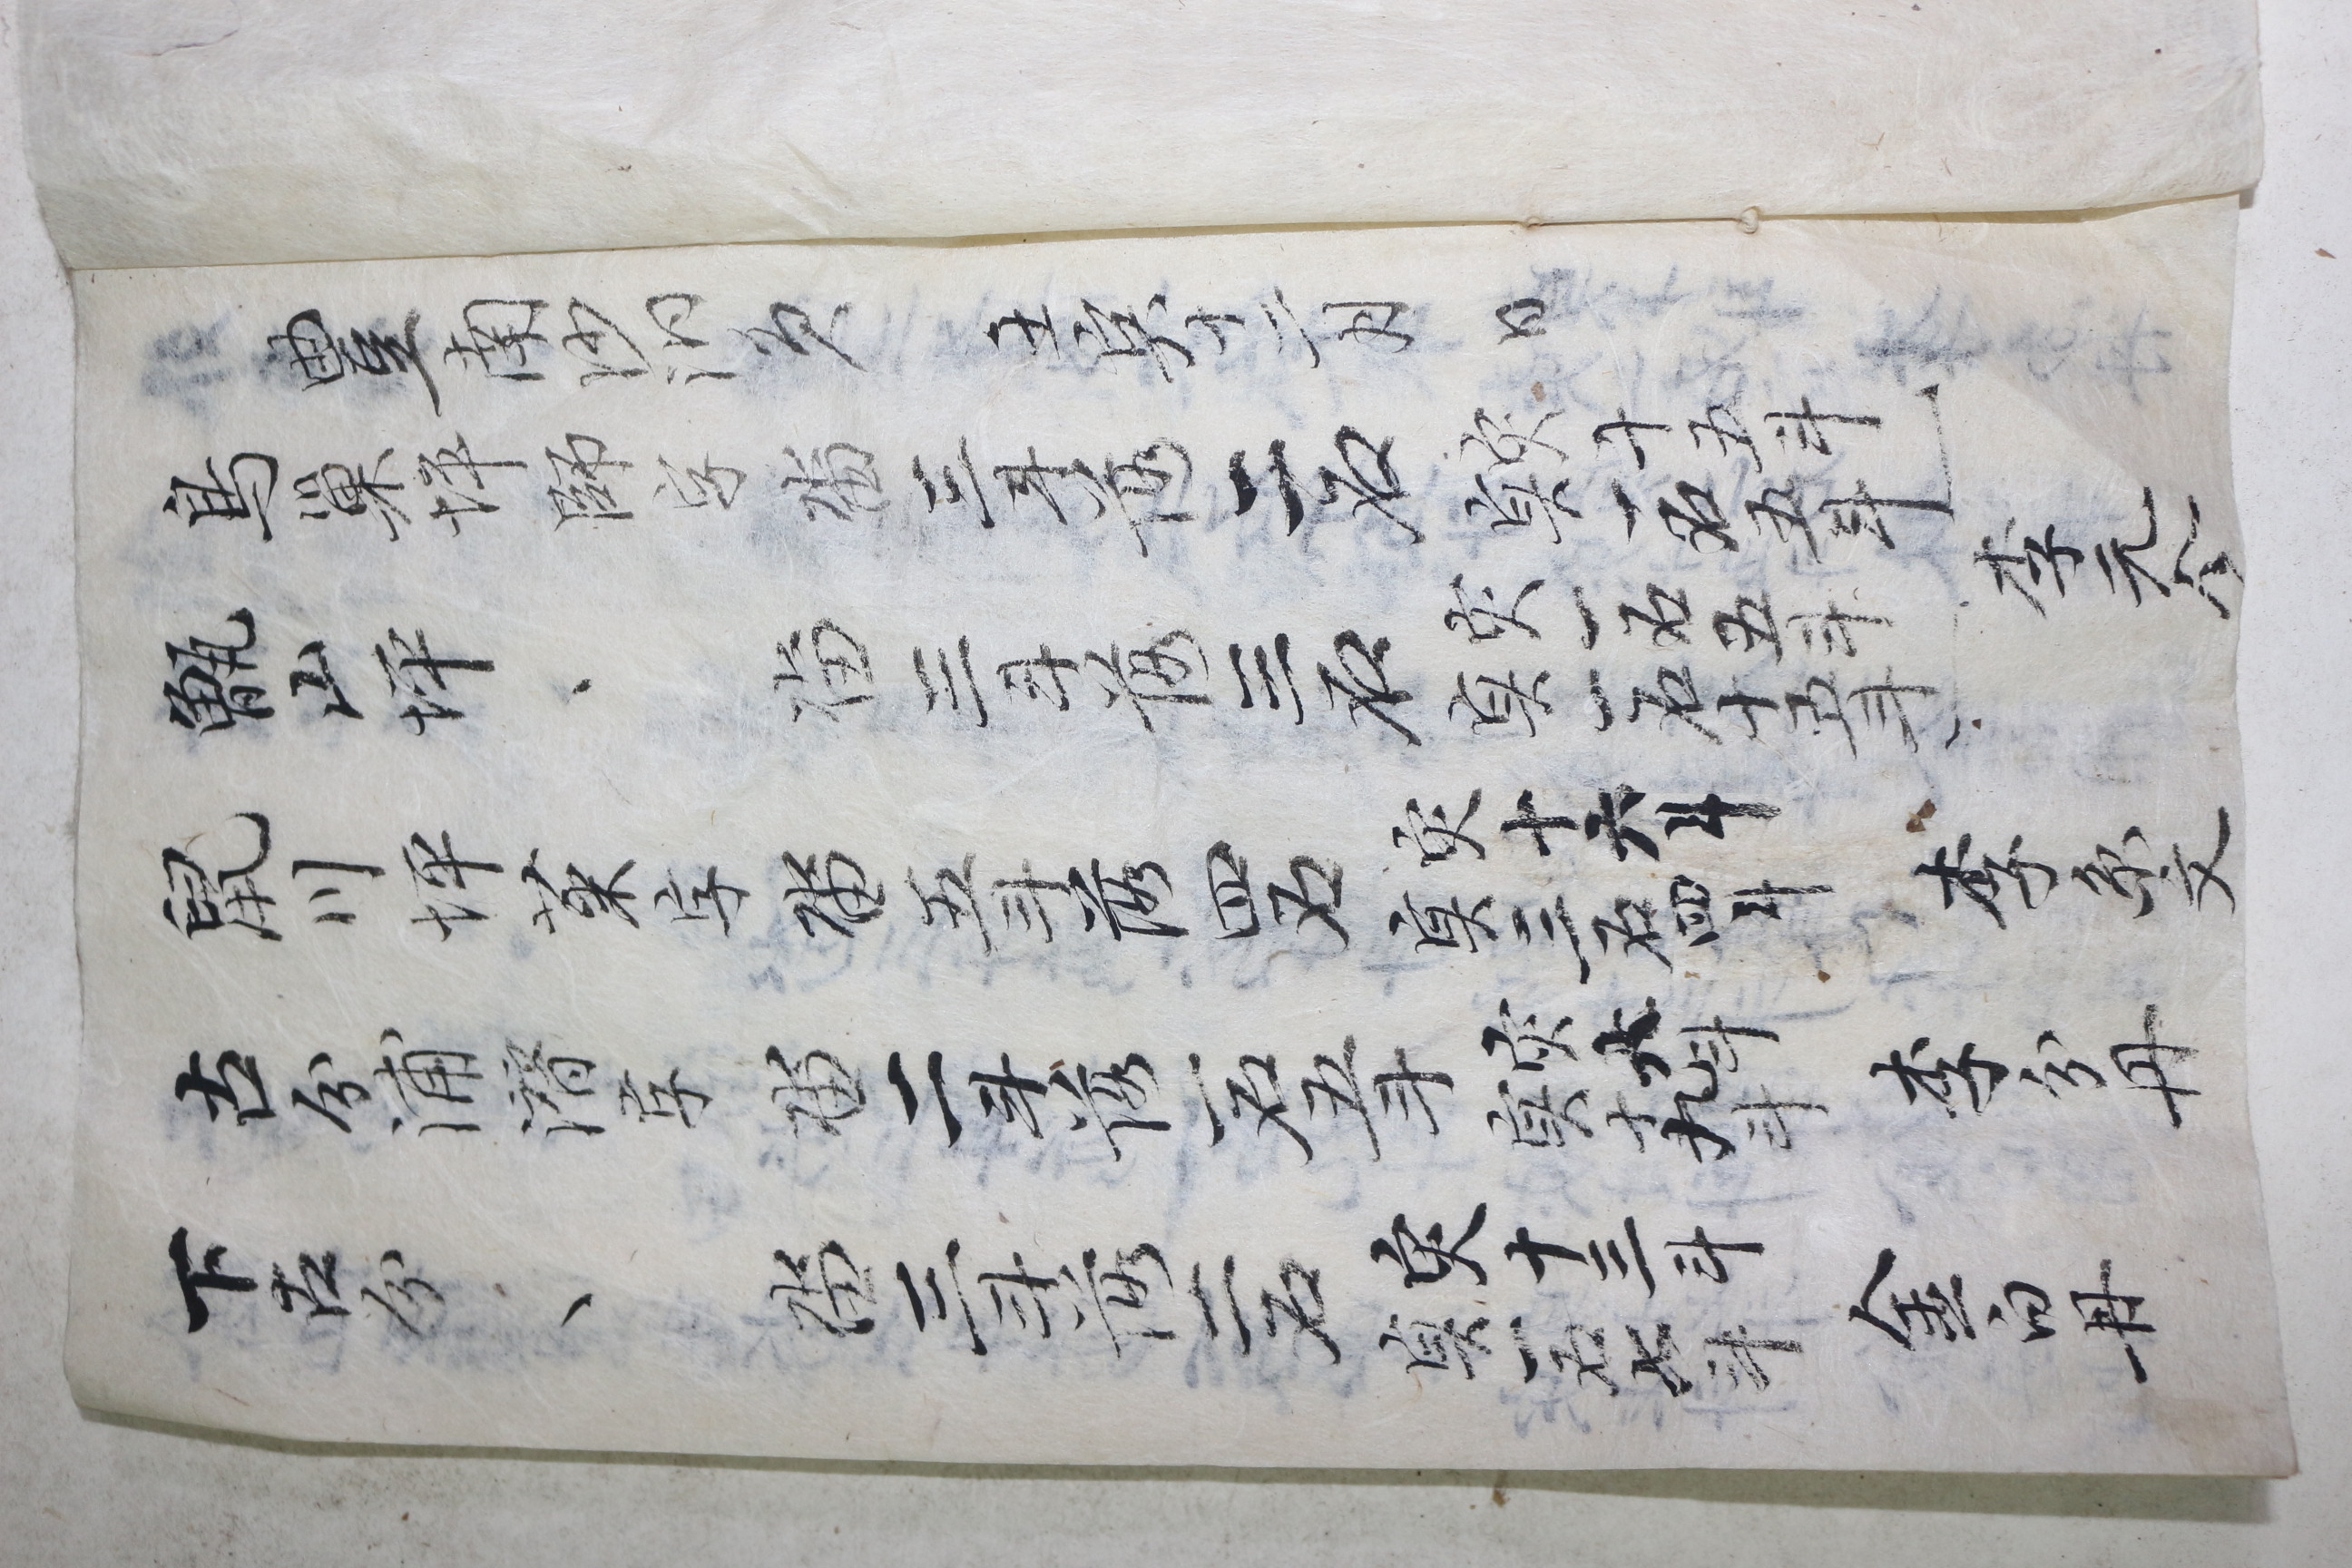 豊南沙汩負 壬寅十二月 日
鳥巢坪師字畓三斗落二石 灾十五斗 実一石五斗
甑山坪、畓三斗落三石 灾一石五斗 実一石十五斗 李元金
鼠川坪菜字畓五斗落四石 灾十六斗 実三石四斗 李京文
古分浦潛字畓二斗落一石五斗 灾六斗 実十九斗 李分丹
下古分、畓三斗落二石 灾十三斗 実一石七斗 金白丹